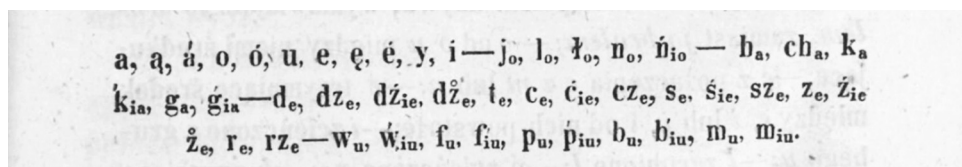 a, ą, á, o, ó, u, e, ę, é, y, i—jₒ, lₒ, łₒ, nₒ, ńᵢₒ—hₐ, chₐ, kₐ
ḱᵢₐ, gₐ, ǵᵢₐ—dₑ, dzₑ, dźᵢₑ, dz̊ₑ, tₑ, cₑ, ćᵢₑ, czₑ, sₑ, śᵢₑ, szₑ, zₑ, źᵢₑ
z̊ₑ, rₑ, rzₑ—wᵤ, ẃᵢᵤ, fᵤ, f́ᵢᵤ, pᵤ, ṕᵢᵤ, bᵤ, b́ᵢᵤ, mᵤ, mᵢᵤ.